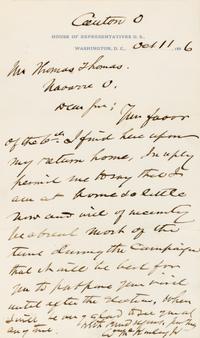 Canton O
HOUSE OF REPRESENTATIVES U.S.,
WASHINGTON, D.C., Oct 11 1886
Mr Thomas Thomas.
Navarre O.
Dear Sir; Your favor
of the 6th I find here upon
my return home. In reply
permit me to say that I
am at home so little
now and will of necessity
be absent most of the
time during the Campaign
that it will be best for
you to postpone your visit
until after the election, when
I will be very glad to see you at
any time.
With kind regards,
W McKinley Jr